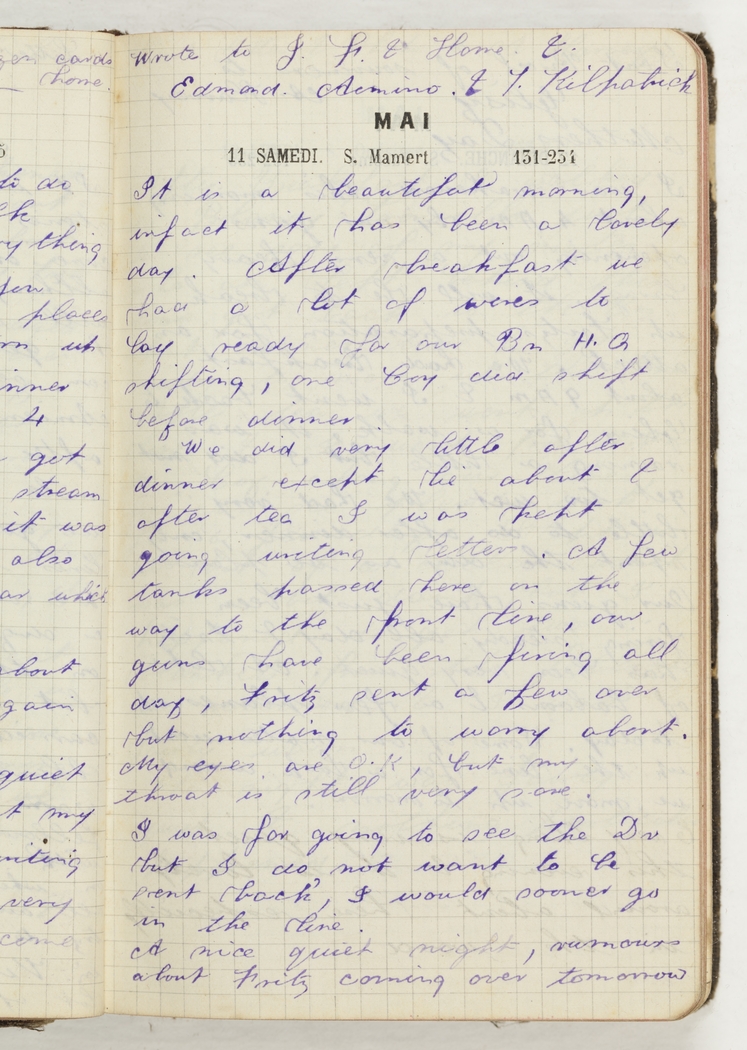 Wrote to J. H. & Home. &.
Edmond. Aimino. & T. Kilpatrick
MAI
11 SAMEDI. S. Mamert 131-234
It is a beautiful morning,
infact it has been a lovely
day. After breakfast we
had a lot of wires to
lay ready for our Bn H.Q
shifting, one Coy did shift
before dinner
We did very little after
dinner except lie about &
after tea I was kept
going writing letter. A few
tanks passed here on the
way to the front line, our
guns have been firing all
day, Fritz sent a few over
but nothing to worry about.
My eyes are O.K, but my
throat is still very sore.
I was for going to see the Dr
but I do not want to be
sent back, I would sooner go
in the line.
A nice quiet night, rumours
about Fritz coming over tomorrow
cards
home.
do
thing
places
up
4
got
stream
it was
also
which
about
quiet
my
very